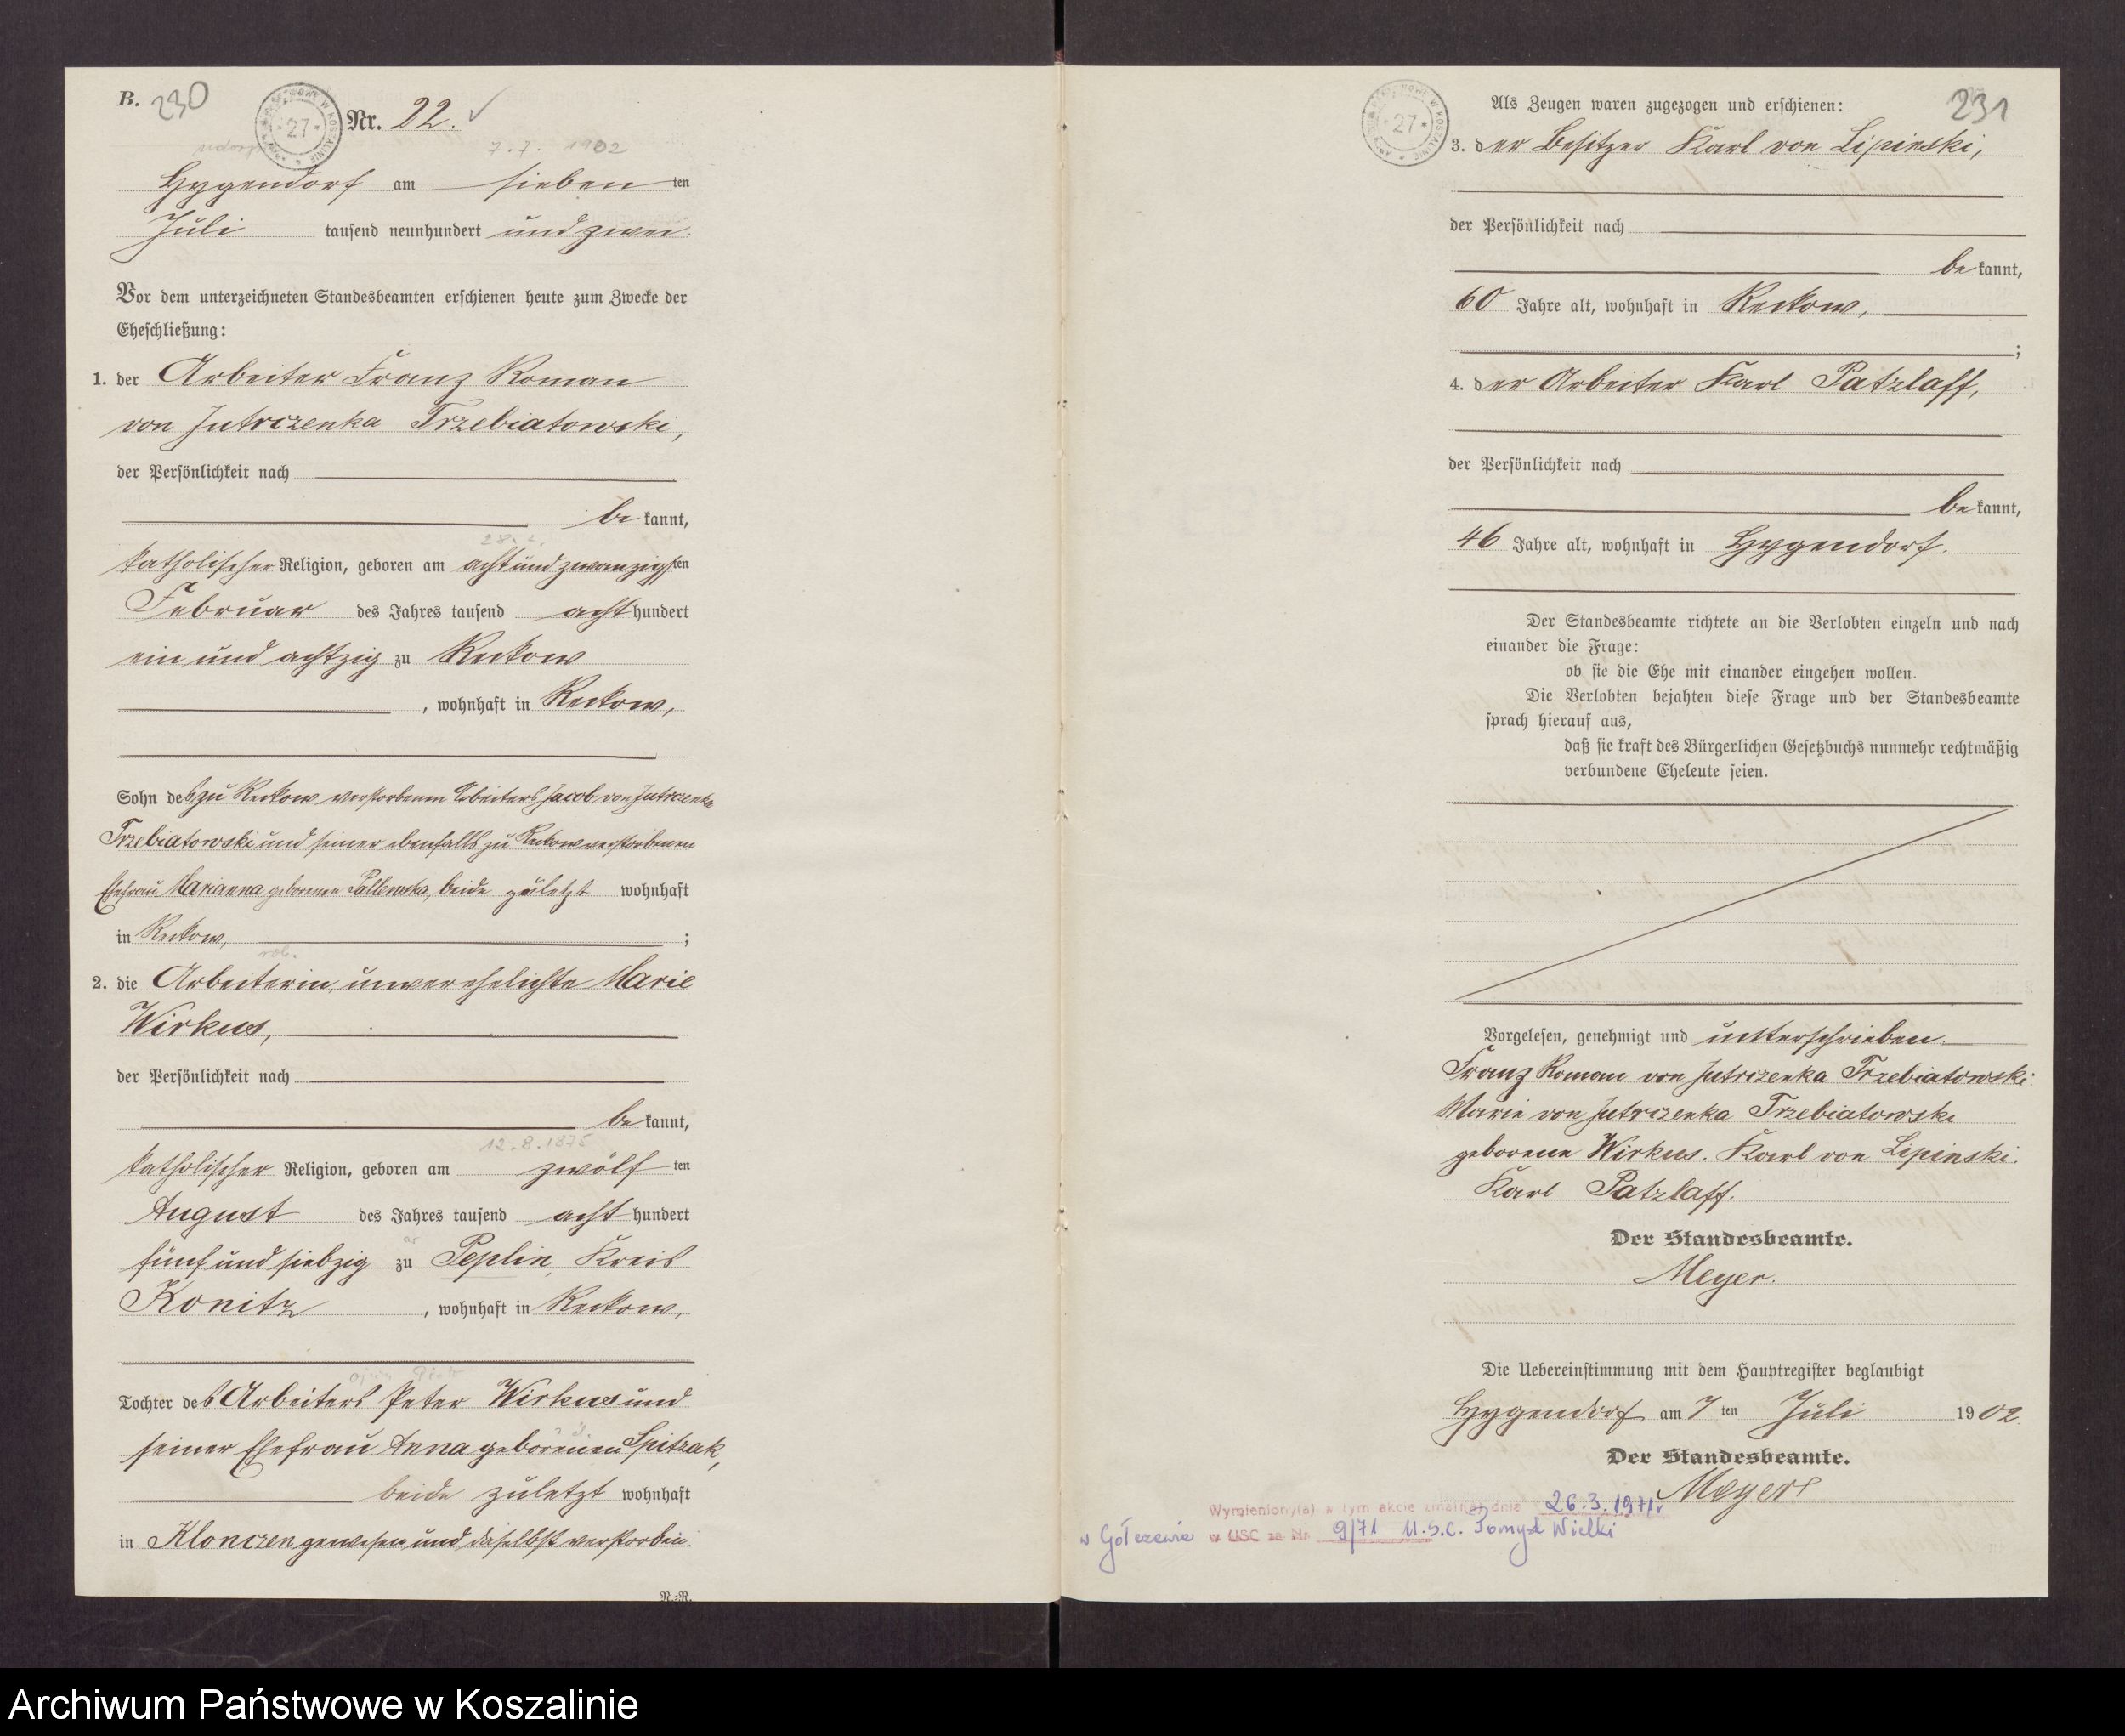 B. 230
Nr. 22.
7.7. 1902
Hygendorf am siebenten
Juli tausend neunhundert und zwei.
Vor dem unterzeichneten Standesbeamten erschienen heute zum Zwecke der
Eheschließung:
1. der Arbeiter Franz Roman
von Jutrczenka Trzebiatowski,
der Persönlichkeit nach
bekannt,
28. 2.
katholischer Religion, geboren am achtundzwanzigsten
Februar des Jahres tausend achthundert
ein und achtzig zu Reckow
, wohnhaft in Reckow,
Sohn des zu Reckow verstorbenen Arbeiters Jacob von Jutrczenka
Trzebiatowski und seiner ebenfalls zu Reckow verstorbenen
Ehefrau Marianna geborenen, beide zuletzt wohnhaft
in Reckow, ;
2. die Arbeiterin, unverehelichte Marie
Wirkus,
der Persönlichkeit nach
bekannt,
12.8.1875
katholischer Religion, geboren am zwölften
August des Jahres tausend achthundert
fünf und siebzig zu Peplin, Kreis
Konitz, wohnhaft in Reckow,
Tochter des Arbeiters Peter Wirkus und
seiner Ehefrau Anna geborenen Spitzak,
beide zuletzt wohnhaft
in Klonczen gewesen und daselbst verstorben.
N.=R.
231
Als Zeugen waren zugezogen und erschienen:
3. der Besitzer Karl von Lipinski,
der Persönlichkeit nach
bekannt,
60 Jahre alt, wohnhaft in Reckow,
;
4. der Arbeiter Karl Patzlaff,
der Persönlichkeit nach
bekannt,
46 Jahre alt, wohnhaft in Hygendorf.
Der Standesbeamte richtete an die Verlobten einzeln und nach
einander die Frage:
ob sie die Ehe mit einander eingehen wollen.
Die Verlobten bejahten diese Frage und der Standesbeamte
sprach hierauf aus,
daß sie kraft des Bürgerlichen Gesetzbuchs nunmehr rechtmäßig
verbundene Eheleute seien.
Vorgelesen, genehmigt und unterschrieben.
Franz Roman von Jutrczenka Trzebiatowski
Marie von Jutrczenka Trzebiatowski
geborene Wirkus. Karl von Lipinski.
Karl Patzlaff.
Der Standesbeamte.
Meyer.
Die Uebereinstimmung mit dem Hauptregister beglaubigt
Hygendorf am 7ten Juli 1902.
Der Standesbeamte.
Meyer
Wymieniony(a) w tym akcie zmarł(a) dnia 26.3.1971r
w Gołczewie w USC za Nr 9/71 U.S.C. Tomysk Wielki
Archiwum Państwowe w Koszalinie